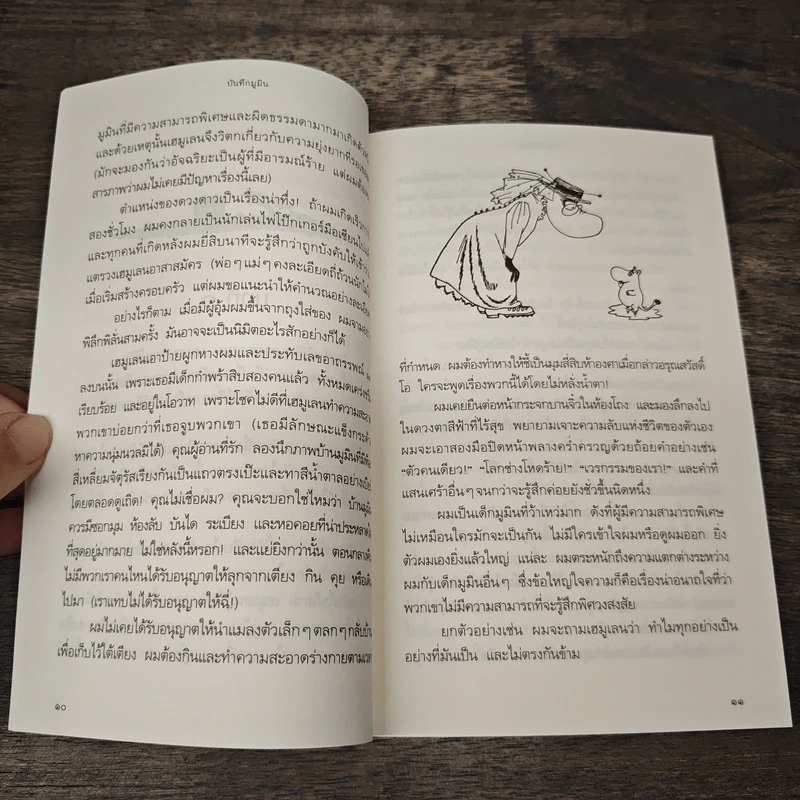 บันทึกมูมิน
มูมินที่มีความสามารถพิเศษและผิดธรรมดามากมาเกิด
และด้วยเหตุนั้นเฮมูเลนจึงวิตกเกี่ยวกับความยุ่งยากที่
(มักจะมองกันว่าอัจฉริยะเป็นผู้ที่มีอารมณ์ร้าย แต่ผม
สารภาพว่าผมไม่เคยมีปัญหาเรื่องนี้เลย)
ตำแหน่งของดวงดาวเป็นเรื่องน่าทึ่ง! ถ้าผมเกิดเร็วกว่า
สองชั่วโมง ผมคงกลายเป็นนักเล่นไพ่โป๊กเกอร์มือเซียน
และทุกคนที่เกิดหลังผมยี่สิบนาทีจะรู้สึกว่าถูกบังคับให้เข้า
แตรวงเฮมูเลนอาสาสมัคร (พ่อๆ แม่ๆ คงละเอียดถี่ถ้วนนัก
เมื่อเริ่มสร้างครอบครัว แต่ผมขอแนะนำให้คำนวณอย่าง
อย่างไรก็ตาม เมื่อมีผู้อุ้มผมขึ้นจากถุงใส่ของ ผมจาม
พิลึกพิลั่นสามครั้ง มันอาจจะเป็นนิมิตอะไรสักอย่างก็ได้
เฮมูเลนเอาป้ายผูกหางผมและประทับเลขอาถรรพณ์
ลงบนนั้น เพราะเธอมีเด็กกำพร้าสิบสองคนแล้ว ทั้งหมด
เรียบร้อย และอยู่ในโอวาท เพราะโชคไม่ดีที่เฮมูเลนทำความสะอาด
พวกเขาบ่อยกว่าที่เธอจูบพวกเขา (เธอมีลักษณะแข็งกระด้าง
หาความนุ่มนวลมิได้) คุณผู้อ่านที่รัก ลองนึกภาพบ้านมูมินที่มี
สี่เหลี่ยมจัตุรัสเรียงกันเป็นแถวตรงเป๊ะและทาสีน้ำตาลอย่าง
โดยตลอดดูเถิด! คุณไม่เชื่อผม? คุณจะบอกใช่ไหมว่า บ้าน
ควรมีซอกมุม ห้องลับ บันได ระเบียง และหอคอยที่น่า
ที่สุดอยู่มากมาย ไม่ใช่หลังนี้หรอก! และแย่ยิ่งกว่านั้น ตอนกลางคืน
ไม่มีพวกเราคนไหนได้รับอนุญาตให้ลุกจากเตียง กิน คุย หรือ
ไปมา (เราแทบไม่ได้รับอนุญาตให้ฉี่!)
ผมไม่เคยได้รับอนุญาตให้นำแมลงตัวเล็กๆ ตลกๆ กลับบ้าน
เพื่อเก็บไว้ใต้เตียง ผมต้องกินและทำความสะอาดร่างกายตามเวลา
๑๐
ที่กำหนด ผมต้องทำหางให้ชี้เป็นมุมสี่สิบห้าองศาเมื่อกล่าวอรุณสวัสดิ์
โอ ใครจะพูดเรื่องพวกนี้ได้โดยไม่หลั่งน้ำตา!
ผมเคยยืนต่อหน้ากระจกบานจิ๋วในห้องโถง และมองลึกลงไป
ในดวงตาสีฟ้าที่ไร้สุข พยายามเจาะความลับแห่งชีวิตของตัวเอง
ผมจะเอาสองมือปิดหน้าพลางคร่ำครวญด้วยถ้อยคำอย่างเช่น
“ตัวคนเดียว!” “โลกช่างโหดร้าย!” “เวรกรรมของเรา!” และคำที่
แสนเศร้าอื่นๆ จนกว่าจะรู้สึกค่อยยังชั่วขึ้นนิดหนึ่ง
ผมเป็นเด็กมูมินที่ว้าเหว่มาก ดังที่ผู้มีความสามารถพิเศษ
ไม่เหมือนใครมักจะเป็นกัน ไม่มีใครเข้าใจผมหรือดูผมออก ยิ่ง
ตัวผมเองยิ่งแล้วใหญ่ แน่ละ ผมตระหนักถึงความแตกต่างระหว่าง
ผมกับเด็กมูมินอื่นๆ ซึ่งข้อใหญ่ใจความก็คือเรื่องน่าอนาถใจที่ว่า
พวกเขาไม่มีความสามารถที่จะรู้สึกพิศวงสงสัย
ยกตัวอย่างเช่น ผมจะถามเฮมูเลนว่า ทำไมทุกอย่างเป็น
อย่างที่มันเป็น และไม่ตรงกันข้าม
๑๑